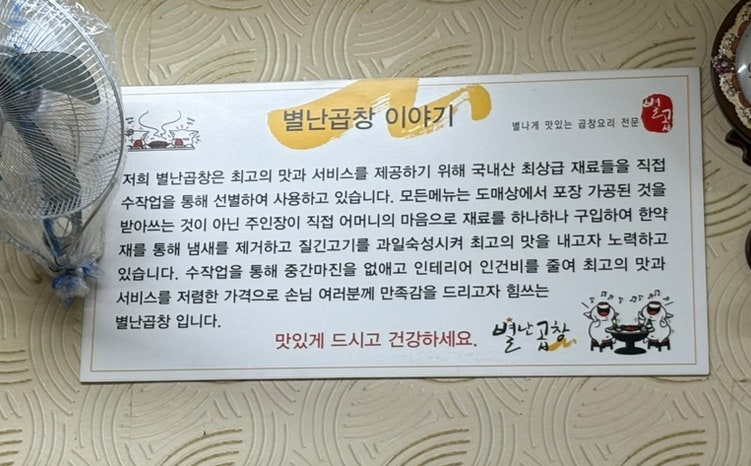 별난곱창 이야기
별나게 맛있는 곱창요리 전문
별곱
저희 별난곱창은 최고의 맛과 서비스를 제공하기 위해 국내산 최상급 재료들을 직접
수작업을 통해 선별하여 사용하고 있습니다. 모든메뉴는 도매상에서 포장 가공된 것을
받아쓰는 것이 아닌 주인장이 직접 어머니의 마음으로 재료를 하나하나 구입하여 한약
재를 통해 냄새를 제거하고 질긴고기를 과일숙성시켜 최고의 맛을 내고자 노력하고
있습니다. 수작업을 통해 중간마진을 없애고 인테리어 인건비를 줄여 최고의 맛과
서비스를 저렴한 가격으로 손님 여러분께 만족감을 드리고자 힘쓰는
별난곱창 입니다.
맛있게 드시고 건강하세요.
별난곱창